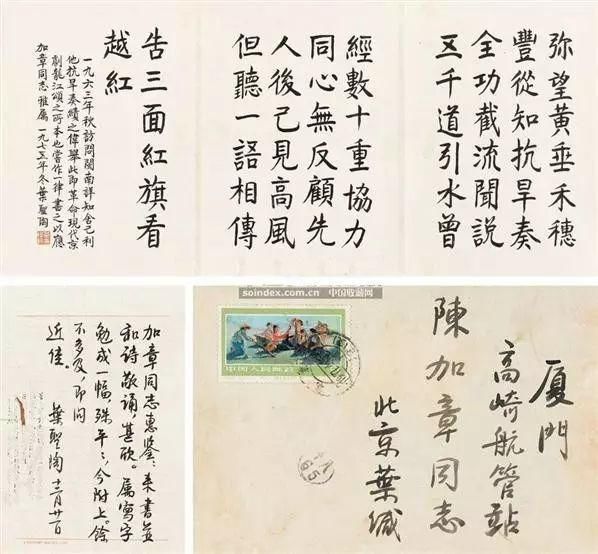 弥望黃垂禾穗
豐從知抗旱奏
全功截流聞說
五千道引水曾
經數十重協力
同心無反顧先
人後己見高風
但聽一語相傳
告三面紅旗看
越紅
一九六三年秋訪問閩南詳知舍己利
他抗旱奏績之偉舉此即革命現代京
劇龍江頌之所本也嘗作一律書之以應
加章同志雅屬 一九七五年冬葉聖陶
soindex.com.cn 中国收藏网
加章同志惠鑒：來書並
和詩敬誦，甚欣。屬寫字
勉成一幅，殊平平，今附上。餘
不多及，即問
近佳。
葉聖陶 十二月廿一日
厦門
高崎航管站
陳加章同志
北京葉緘
中国人民邮政